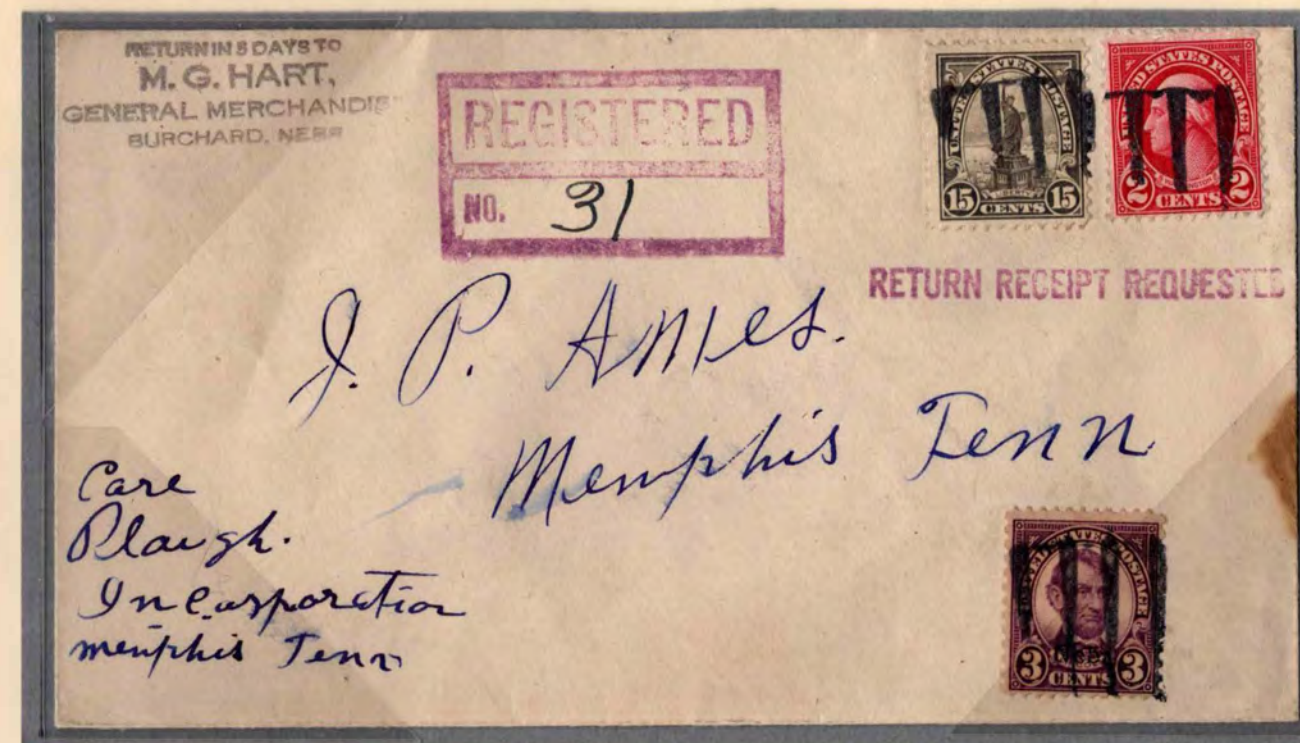 RETURN IN 5 DAYS TO
M. G. HART,
GENERAL MERCHANDISE
BURCHARD, NEBR
REGISTERED
NO. 31
UNITED STATES POSTAGE
LIBERTY
15 CENTS 15
UNITED STATES POSTAGE
2 CENTS 2
RETURN RECEIPT REQUESTED
J. P. Ames.
Memphis Tenn
Care
Plaugh.
Incorporation
memphis Tenn
UNITED STATES POSTAGE
Nebr.
3 CENTS 3